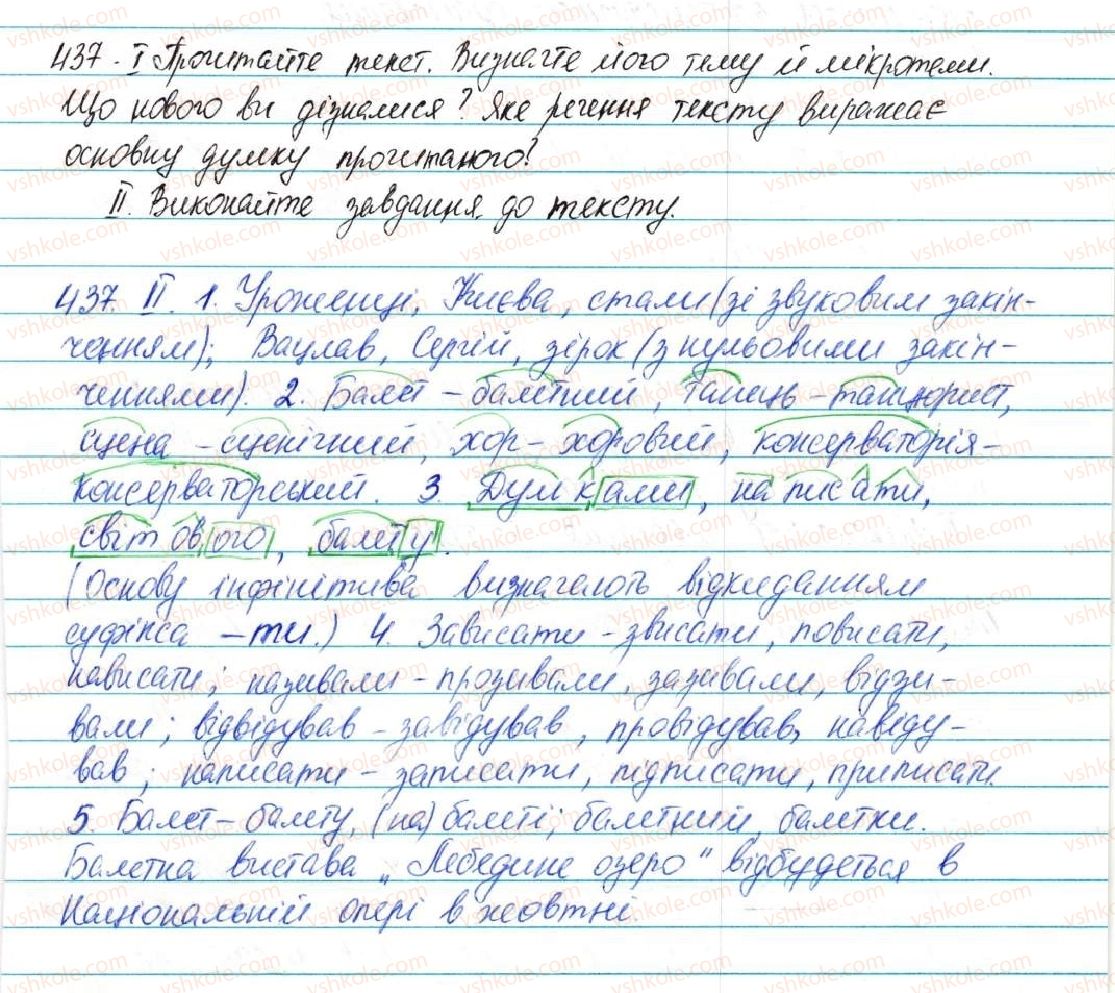 437. I Прочитайте текст. Визначте його тему й мікротеми.
Що нового ви дізналися? Яке речення тексту виражає
основну думку прочитаного?
II. Виконайте завдання до тексту.
437. II. 1. Уроженці, Києва, стали (зі звуковим закін-
ченням); Вацлав, Сергій, зірок (з нульовими закін-
ченнями). 2. Балет – балетний, танець – танцюрист,
сцена – сценічний, хор – хоровий, консерваторія –
консерваторський. 3 Думками, написати,
світового, балету.
(Основу інфінітива визначають відкиданням
суфікса –ти.) 4. Зависати – звисати, повисати,
нависати; називали – прозивали, зазивали, відзи-
вали; відвідував – завідував, провідував, навіду-
вав; написати – записати, підписати, приписати.
5. Балет – балету, (на) балеті; балетний, балетки.
Балетна вистава „Лебедине озеро" відбудеться в
Національній опері в жовтні.
vshkole.com